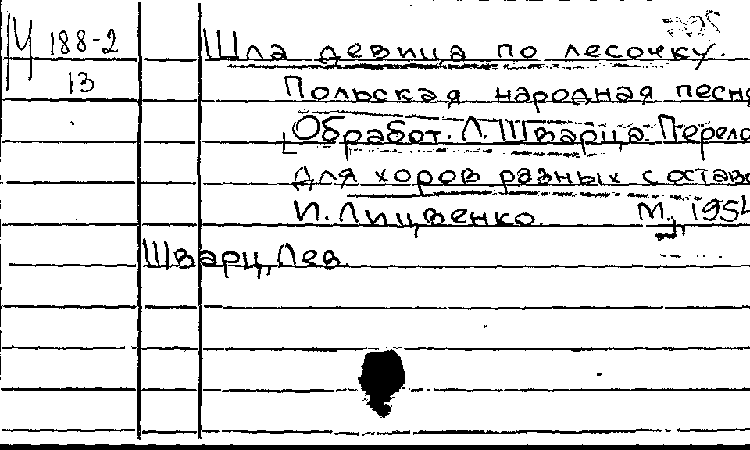 М 188-2
13
Шла девица по лесочку.
Польская народная песня
[Обработ. Л. Шварца. Перело
для хоров разных состав
И. Лицвенко. М., 195
Шварц, Лев.